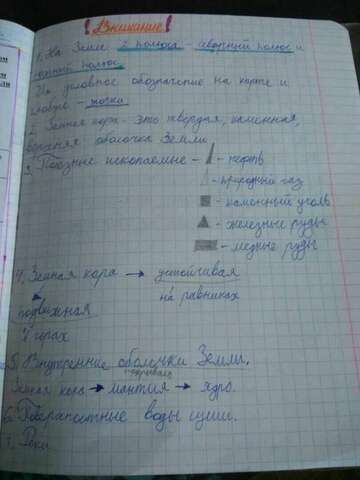 ! Внимание !
1. На Земле 2 полюса - северный полюс и
южный полюс
Их условное обозначение на карте и
глобусе - точки
2. Земная кора - это твердая, каменная,
верхняя оболочка Земли
3. Полезные ископаемые - - нефть
- природный газ
- каменный уголь
- железные руды
- медные руды
4. Земная кора → устойчивая
на равнинах
подвижная
в горах
5. Внутренние оболочки Земли.
Земная кора → мантия → ядро.
6. воды суши.
7. Реки